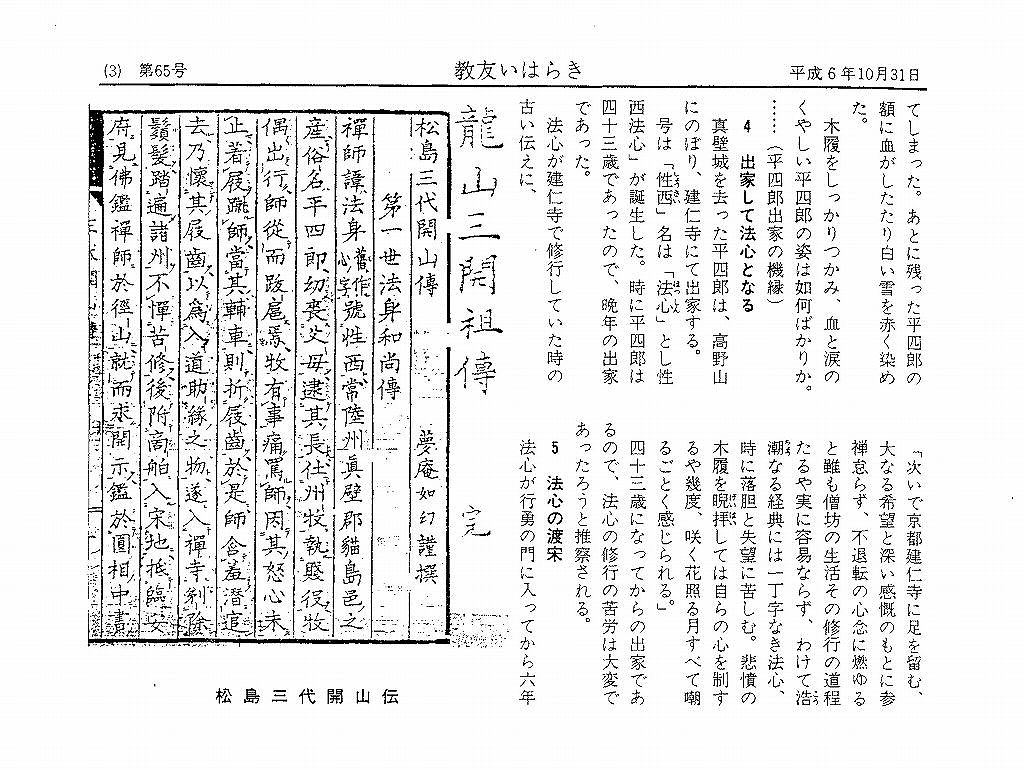 (3) 第65号
教友いはらき
平成6年10月31日
てしまった。あとに残った平四郎の
額に血がしたたり白い雪を赤く染め
た。
木履をしっかりつかみ、血と涙の
くやしい平四郎の姿は如何ばかりか。
……(平四郎出家の機縁)
4 出家して法心となる
真壁城を去った平四郎は、高野山
にのぼり、建仁寺にて出家する。
号は「性西」名は「法心」とし性
西法心」が誕生した。時に平四郎は
四十三歳であったので、晩年の出家
であった。
法心が建仁寺で修行していた時の
古い伝えに、
「次いで京都建仁寺に足を留む、
大なる希望と深い感慨のもとに参
禅怠らず、不退転の心念に燃ゆる
と雖も僧坊の生活その修行の道程
たるや実に容易ならず、わけて浩
潮なる経典には一丁字なき法心、
時に落胆と失望に苦しむ。悲憤の
木履を睨拝しては自らの心を制す
るや幾度、咲く花照る月すべて嘲
るごとく感じられる。」
四十三歳になってからの出家であ
るので、法心の修行の苦労は大変で
あったろうと推察される。
5 法心の渡宋
法心が行勇の門に入ってから六年
龍山三開祖傳 完
松島三代開山傳 夢庵如幻謹撰
第一世法身和尚傳
禪師諱法身舊作心字號性西常陸州眞壁郡猫島邑之
産俗名平四郎幼喪父母逮其長仕州牧執賤役牧
偶出行師從而跂扈焉牧有事痛罵師因其怒心未
止著屐蹴師當其輔車則折屐齒於是師含羞潛退
去乃懷其屐齒以為入道助緣之物遂入禪寺剃除
鬚髮踏遍諸州不憚苦修後附商舶入宋地抵臨安
府見佛鑑禪師於徑山就而求開示鑑於圓相中書
松島三代開山伝